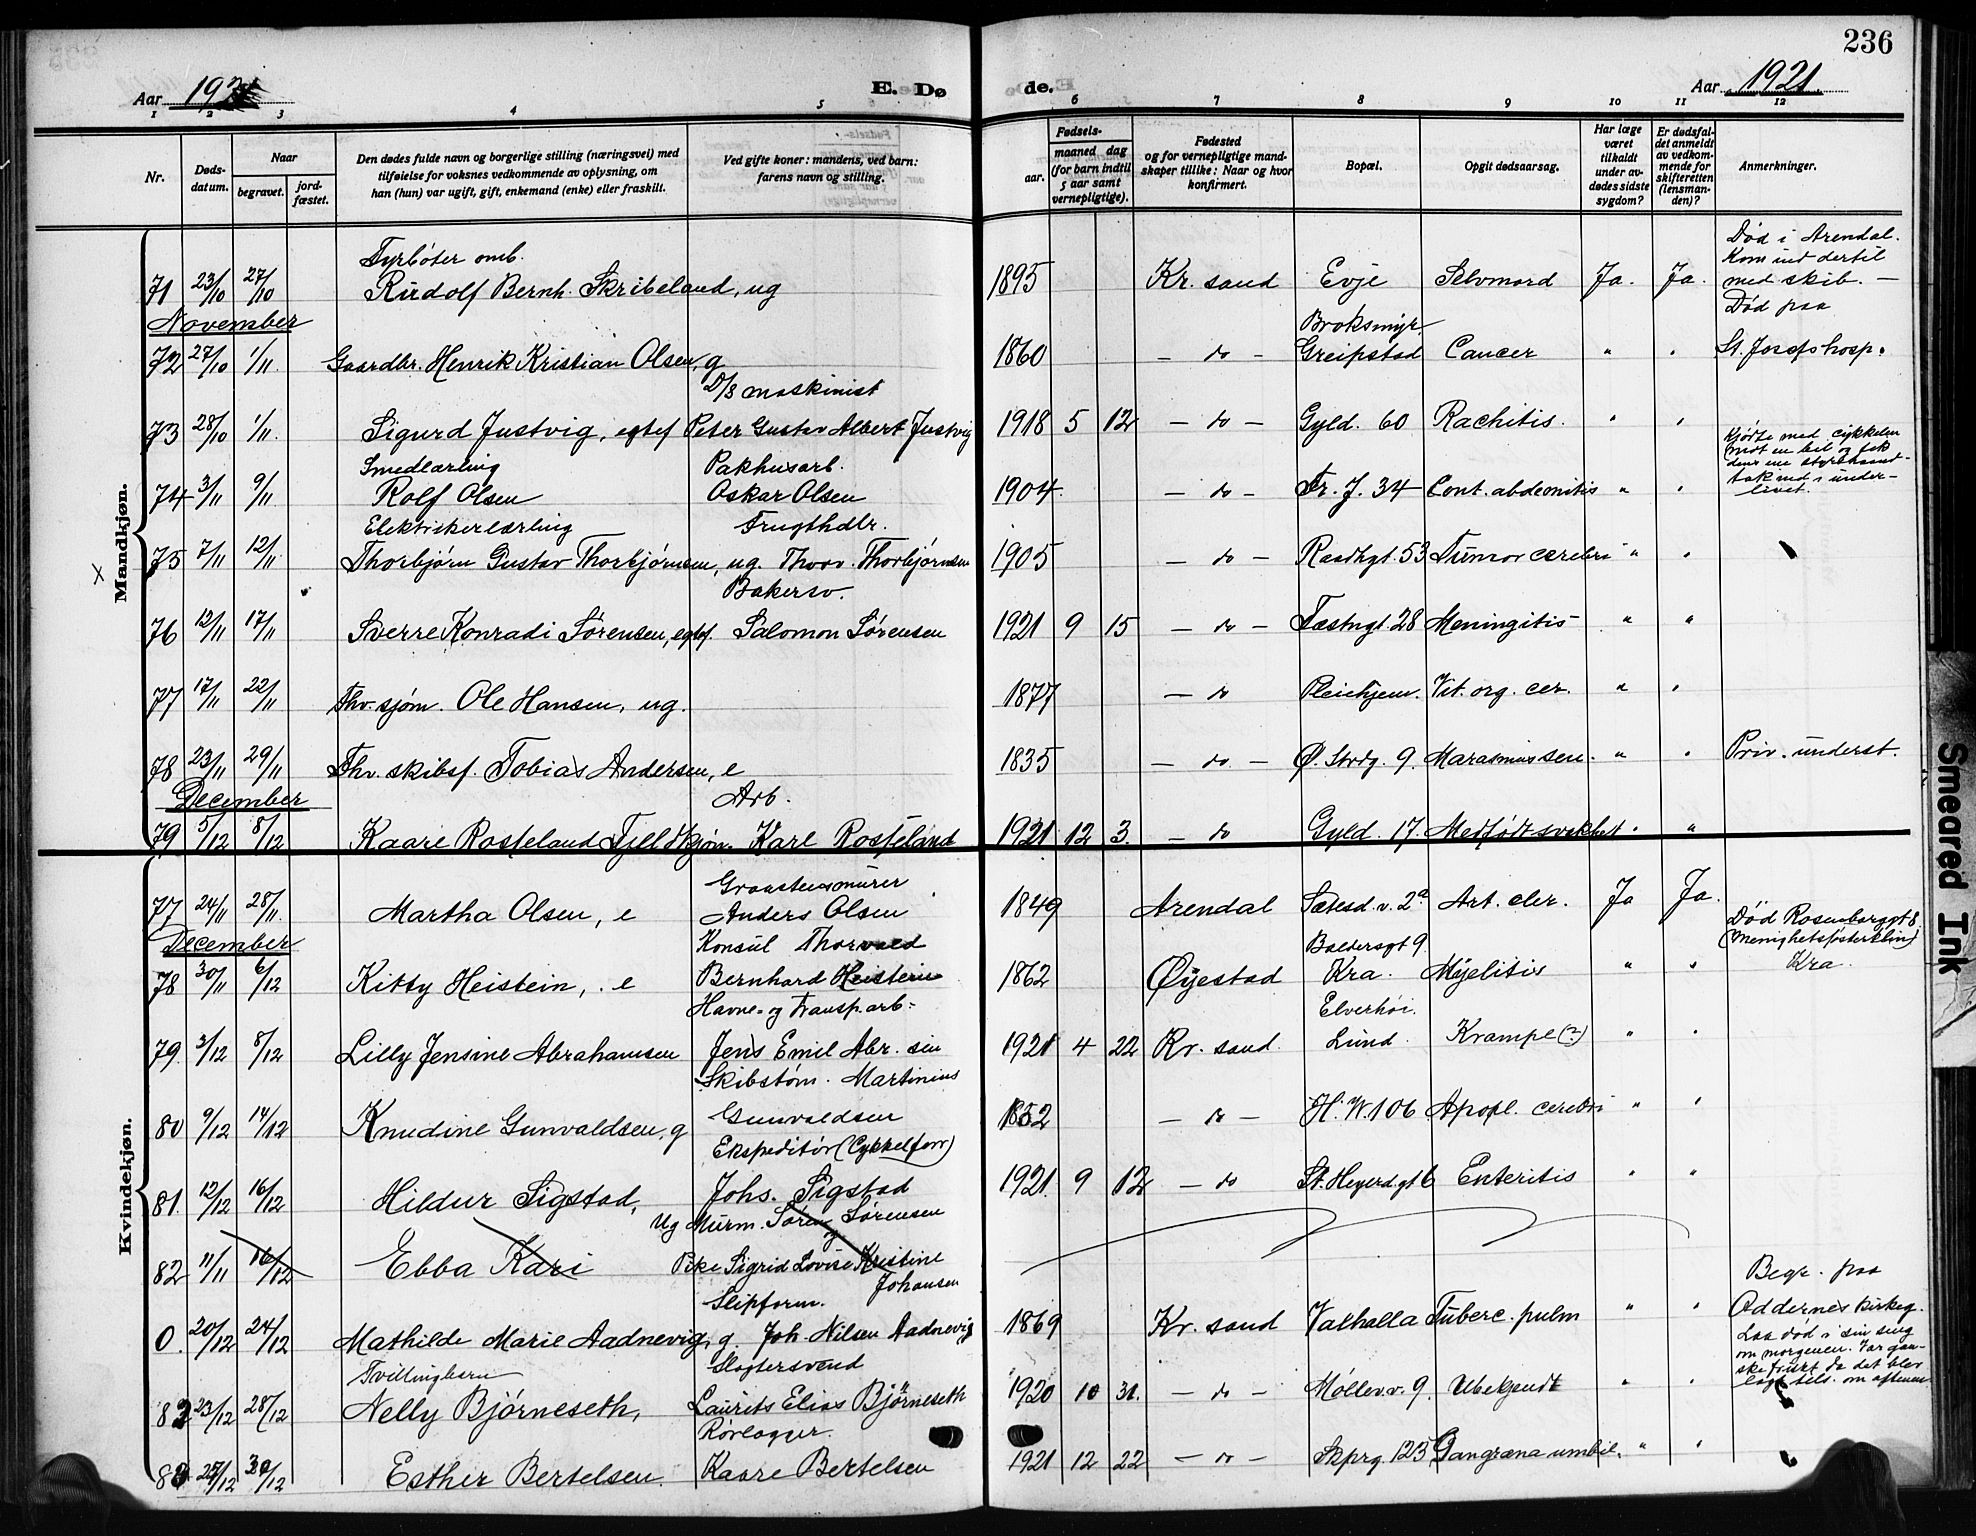 236
Aar 1921 E. Døde. Aar 1921.
1 2 3 4 5 6 7 8 9 10 11 12
Nr. Dødsdatum. Naar begravet. jordfæstet. Den dødes fulde navn og borgerlige stilling (næringsvei) med tilføielse for voksnes vedkommende av oplysning, om han (hun) var ugift, gift, enkemand (enke) eller fraskilt. Ved gifte koner: mandens, ved barn: farens navn og stilling. Fødsels- aar. maaned dag (for barn indtil 5 aar samt vernepligtige). Fødested og for vernepligtige mandskaper tillike: Naar og hvor konfirmert. Bopæl. Opgit dødsaarsag. Har læge været tilkaldt under avdødes sidste sygdom? Er dødsfaldet anmeldt av vedkommende for skifteretten (lensmanden)? Anmerkninger.
Mandkjøn.
Fyrbøter omb.
71 23/10 27/10 Rudolf Bernh. Skribeland, ug 1895 Kr. sand Evje Selvmord Ja. Ja. Død i Arendal. Kom ind dertil med skib. —
November
72 27/10 1/11. Gaardbr. Henrik Kristian Olsen, g 1860 — do — Broksmyr. Greipstad Cancer " " Død paa St. Josefs hosp.
D/S maskinist
73 28/10 1/11. Sigurd Justvig, egtef Peter Gustav Albert Justvig 1918 5 12 — do — Gyld. 60 Rachitis. " "
Smedlærling Pakhusarb.
74 3/11 9/11 Rolf Olsen Oskar Olsen 1904 — do — Fr. J. 34 Cont. abdomitis " " Kjørte med cykkelen mot en bil og fik denne styrehaand-tak ned i under-livet.
Elektrikerlærling Frugthdlr.
75 7/11 12/11. Thorbjørn Gustav Thorbjørnsen, ug. Thorv. Thorbjørnsen 1905 — do — Raadhgt. 53 Tumor cerebri " "
Bakersv.
76 12/11 17/11 Sverre Konradi Sørensen, egtef. Salomon Sørensen 1921 9 15 — do — Fæstngt. 28 Meningitis " "
77 17/11 22/11 Fhv. sjøm. Ole Hansen, ug. 1877 — do Pleiehjem. Vit. org. cer. " "
78 23/11 29/11 Fhv. skibsf. Tobias Andersen, e 1835 — do — Ø. Strdg. 9. Marasmus sen. " " Priv. underst.
December Arb.
79 5/12 8/12 Kaare Rosseland Fjeldkjøn. Karl Rosseland 1921 12 3. — do Gyld. 17. Medfødt svakhet " "
Kvindekjøn.
Graastensmurer
77 24/11 28/11. Martha Olsen, e Anders Olsen 1849 Arendal Sætesd. v. 2a Art. cler. Ja Ja.
December
78 30/11 6/12 Kitty Heistein, e Konsul Thorvald Bernhard Heistein 1862 Øyestad Baldersgt 9. Kra. Myelitis " " Død Rosenborggt 8 (Menighetsøsterklin) Kra.
Havne- og Transp.arb.
79. 3/12 8/12 Lilly Jensine Abrahamsen Jens Emil Abr. sen 1921 4 22 Kr. sand. Elverhøi. Lund. Krampe (?) " "
Skibstøm. Martinius
80 9/12 14/12 Knudine Gunvaldsen, g Gunvaldsen 1852 — do — H. W. 106 Apopl. cerebri " "
Ekspeditør (Cykkelforr)
81. 12/12 16/12 Hildur Sigstad, Johs. Sigstad 1921. 9 12 — do St. Heyerdgt 6 Enteritis " "
Ug Murm. Søren Sørensen og
82 11/11 16/12 Ebba Kari Pike Sigrid Lovise Kristine Johansen
Slipform.
0. 20/12 24/12 Mathilde Marie Aadnevig, g. Joh. Nilsen Aadnevig 1869 Kr. sand Valhalla Tuberc. pulm " " Begr. paa Oddernes kirkeg.
Tvillingbarn Slagtersvend
82 23/12 28/12 Nelly Bjørneseth, Laurits Elias Bjørneseth 1920 10 31. — do — Møllev. v. 9. Ubekjendt " " Laa død i sin seng om morgenen. Var gan-ske frisk da det blev lagt tils. om aftenen
Rørlægger.
83 25/12 30/12 Esther Bertelsen. Kaare Bertelsen 1921 12 22 — do — Skprg 123 Gangræna umbil. " "
Smeared Ink